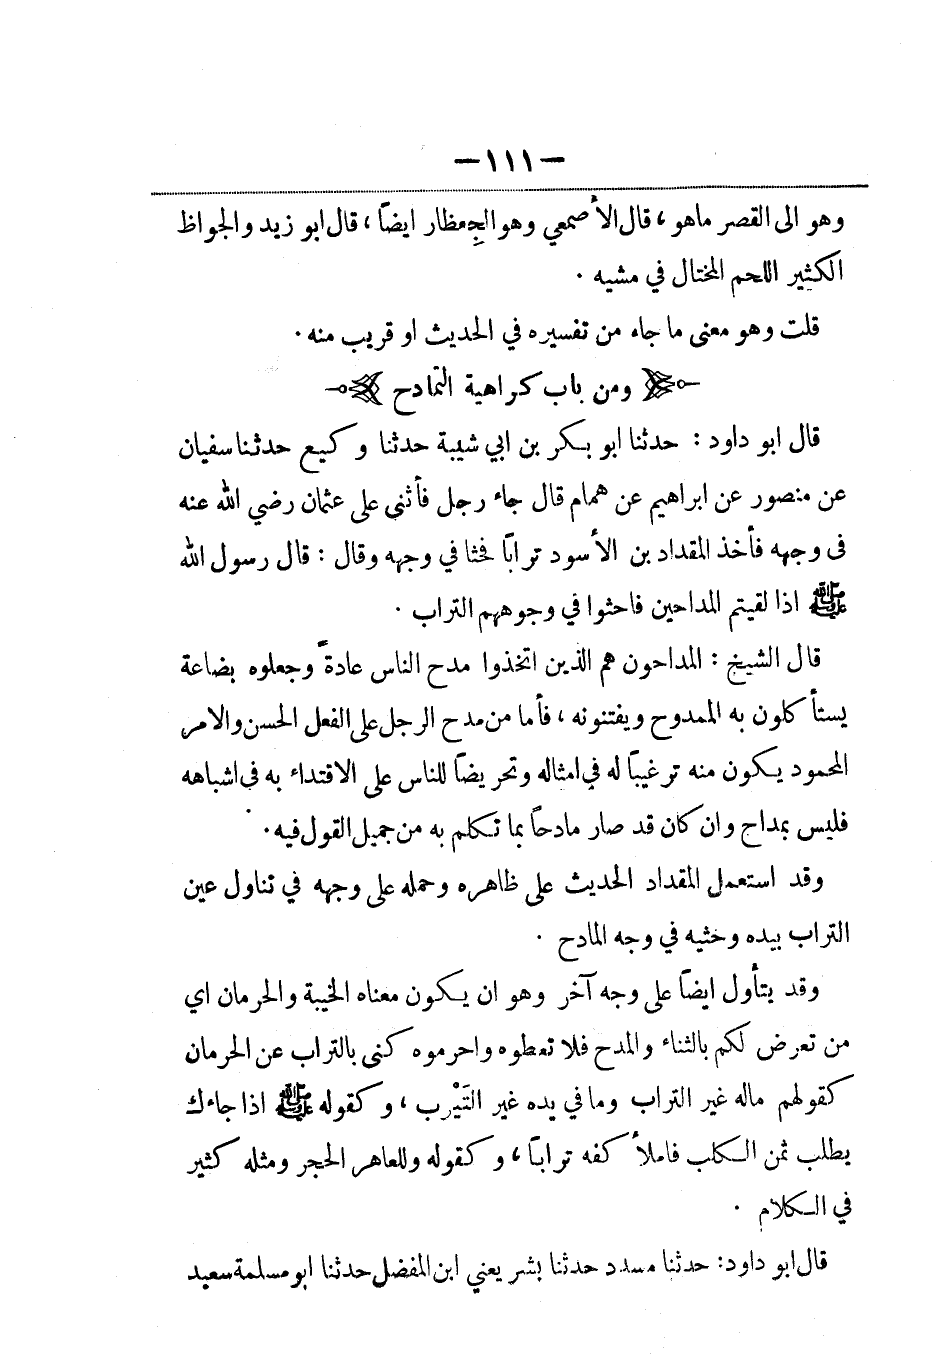 — ١١١ —
وهو الى القصر ماهو ، قال الأصمعي وهو الجِعظار ايضاً ، قال ابو زيد والجواظ
الكثير اللحم المختال في مشيه .
قلت وهو معنى ما جاء من تفسيره في الحديث او قريب منه .
ومن باب كراهية التمادح
قال ابو داود : حدثنا ابو بكر بن ابي شيبة حدثنا وكيع حدثنا سفيان
عن منصور عن ابراهيم عن همام قال جاء رجل فأثنى على عثمان رضي الله عنه
فى وجهه فأخذ المقداد بن الأسود تراباً فحثا في وجهه وقال : قال رسول الله
ﷺ اذا لقيتم المداحين فاحثوا في وجوههم التراب .
قال الشيخ : المداحون هم الذين اتخذوا مدح الناس عادةً وجعلوه بضاعة
يستأكلون به الممدوح ويفتنونه ، فأما من مدح الرجل على الفعل الحسن والامر
المحمود يكون منه ترغيباً له في امثاله وتحريضاً للناس على الاقتداء به فى اشباهه
فليس بمداح وان كان قد صار مادحاً بما تكلم به من جميل القول فيه .
وقد استعمل المقداد الحديث على ظاهره وحمله على وجهه في تناول عين
التراب بيده وحثيه في وجه المادح .
وقد يتأول ايضاً على وجه آخر وهو ان يكون معناه الخيبة والحرمان اي
من تعرض لكم بالثناء والمدح فلا تعطوه واحرموه كنى بالتراب عن الحرمان
كقولهم ماله غير التراب وما في يده غير التَيْرب ، وكقوله ﷺ اذا جاءك
يطلب ثمن الكلب فاملأ كفه تراباً ، وكقوله وللعاهر الحجر ومثله كثير
في الكلام .
قال ابو داود: حدثنا مسدد حدثنا بشر يعني ابن المفضل حدثنا ابو مسلمة سعيد